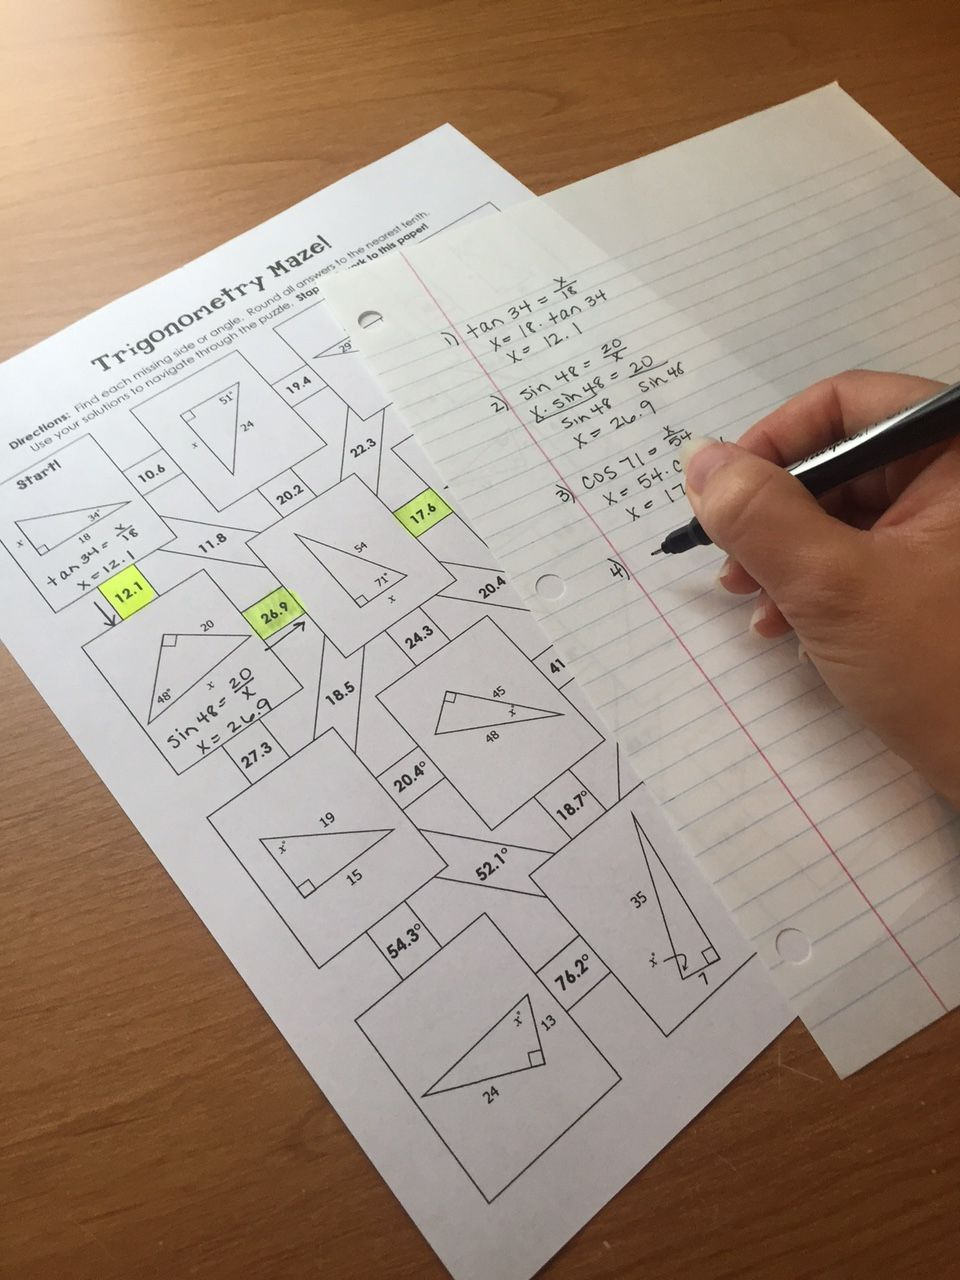 Trigonometry Maze!
Directions: Find each missing side or angle. Round all answers to the nearest tenth.
Use your solutions to navigate through the puzzle. Stap to this paper!
Start!
x
34°
18
tan 34 = x/18
x = 12.1
10.6
51°
x
24
19.4
29°
22.3
20.2
11.8
12.1
26.9
54
71°
x
17.6
20.4
20
48°
x
sin 48 = 20/x
x = 26.9
27.3
18.5
24.3
41
45
x°
48
20.4°
18.7°
19
x°
15
52.1°
54.3°
76.2°
35
x°
7
x°
13
24
1) tan 34 = x/18
x = 18 · tan 34
x = 12.1
2) sin 48 = 20/x
x · sin 48 = 20
sin 48 sin 48
x = 26.9
3) cos 71 = x/54
x = 54 · c
x = 17
4)